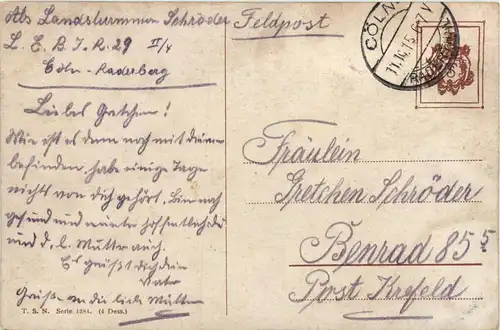 Abs Landsturmmann Schröder
Feldpost
L. E. B. I. R. 29 II/4
Cöln-Raderberg
CÖLN
11.10.15. 6-7 V
RADER
Liebes Gretchen!
Wie ist es denn noch mit deinem
befinden, habe einige Tage
nichts von dich gehört. Bin noch
gesund und munter hoffentlich du
und d. l. Mutter auch.
Es grüßt dich dein
Vater
Grüße an die liebe Mutter
Fräulein
Gretchen Schröder
Benrad 85 5
Post Krefeld
T. S. N. Serie 1284. (4 Dess.)